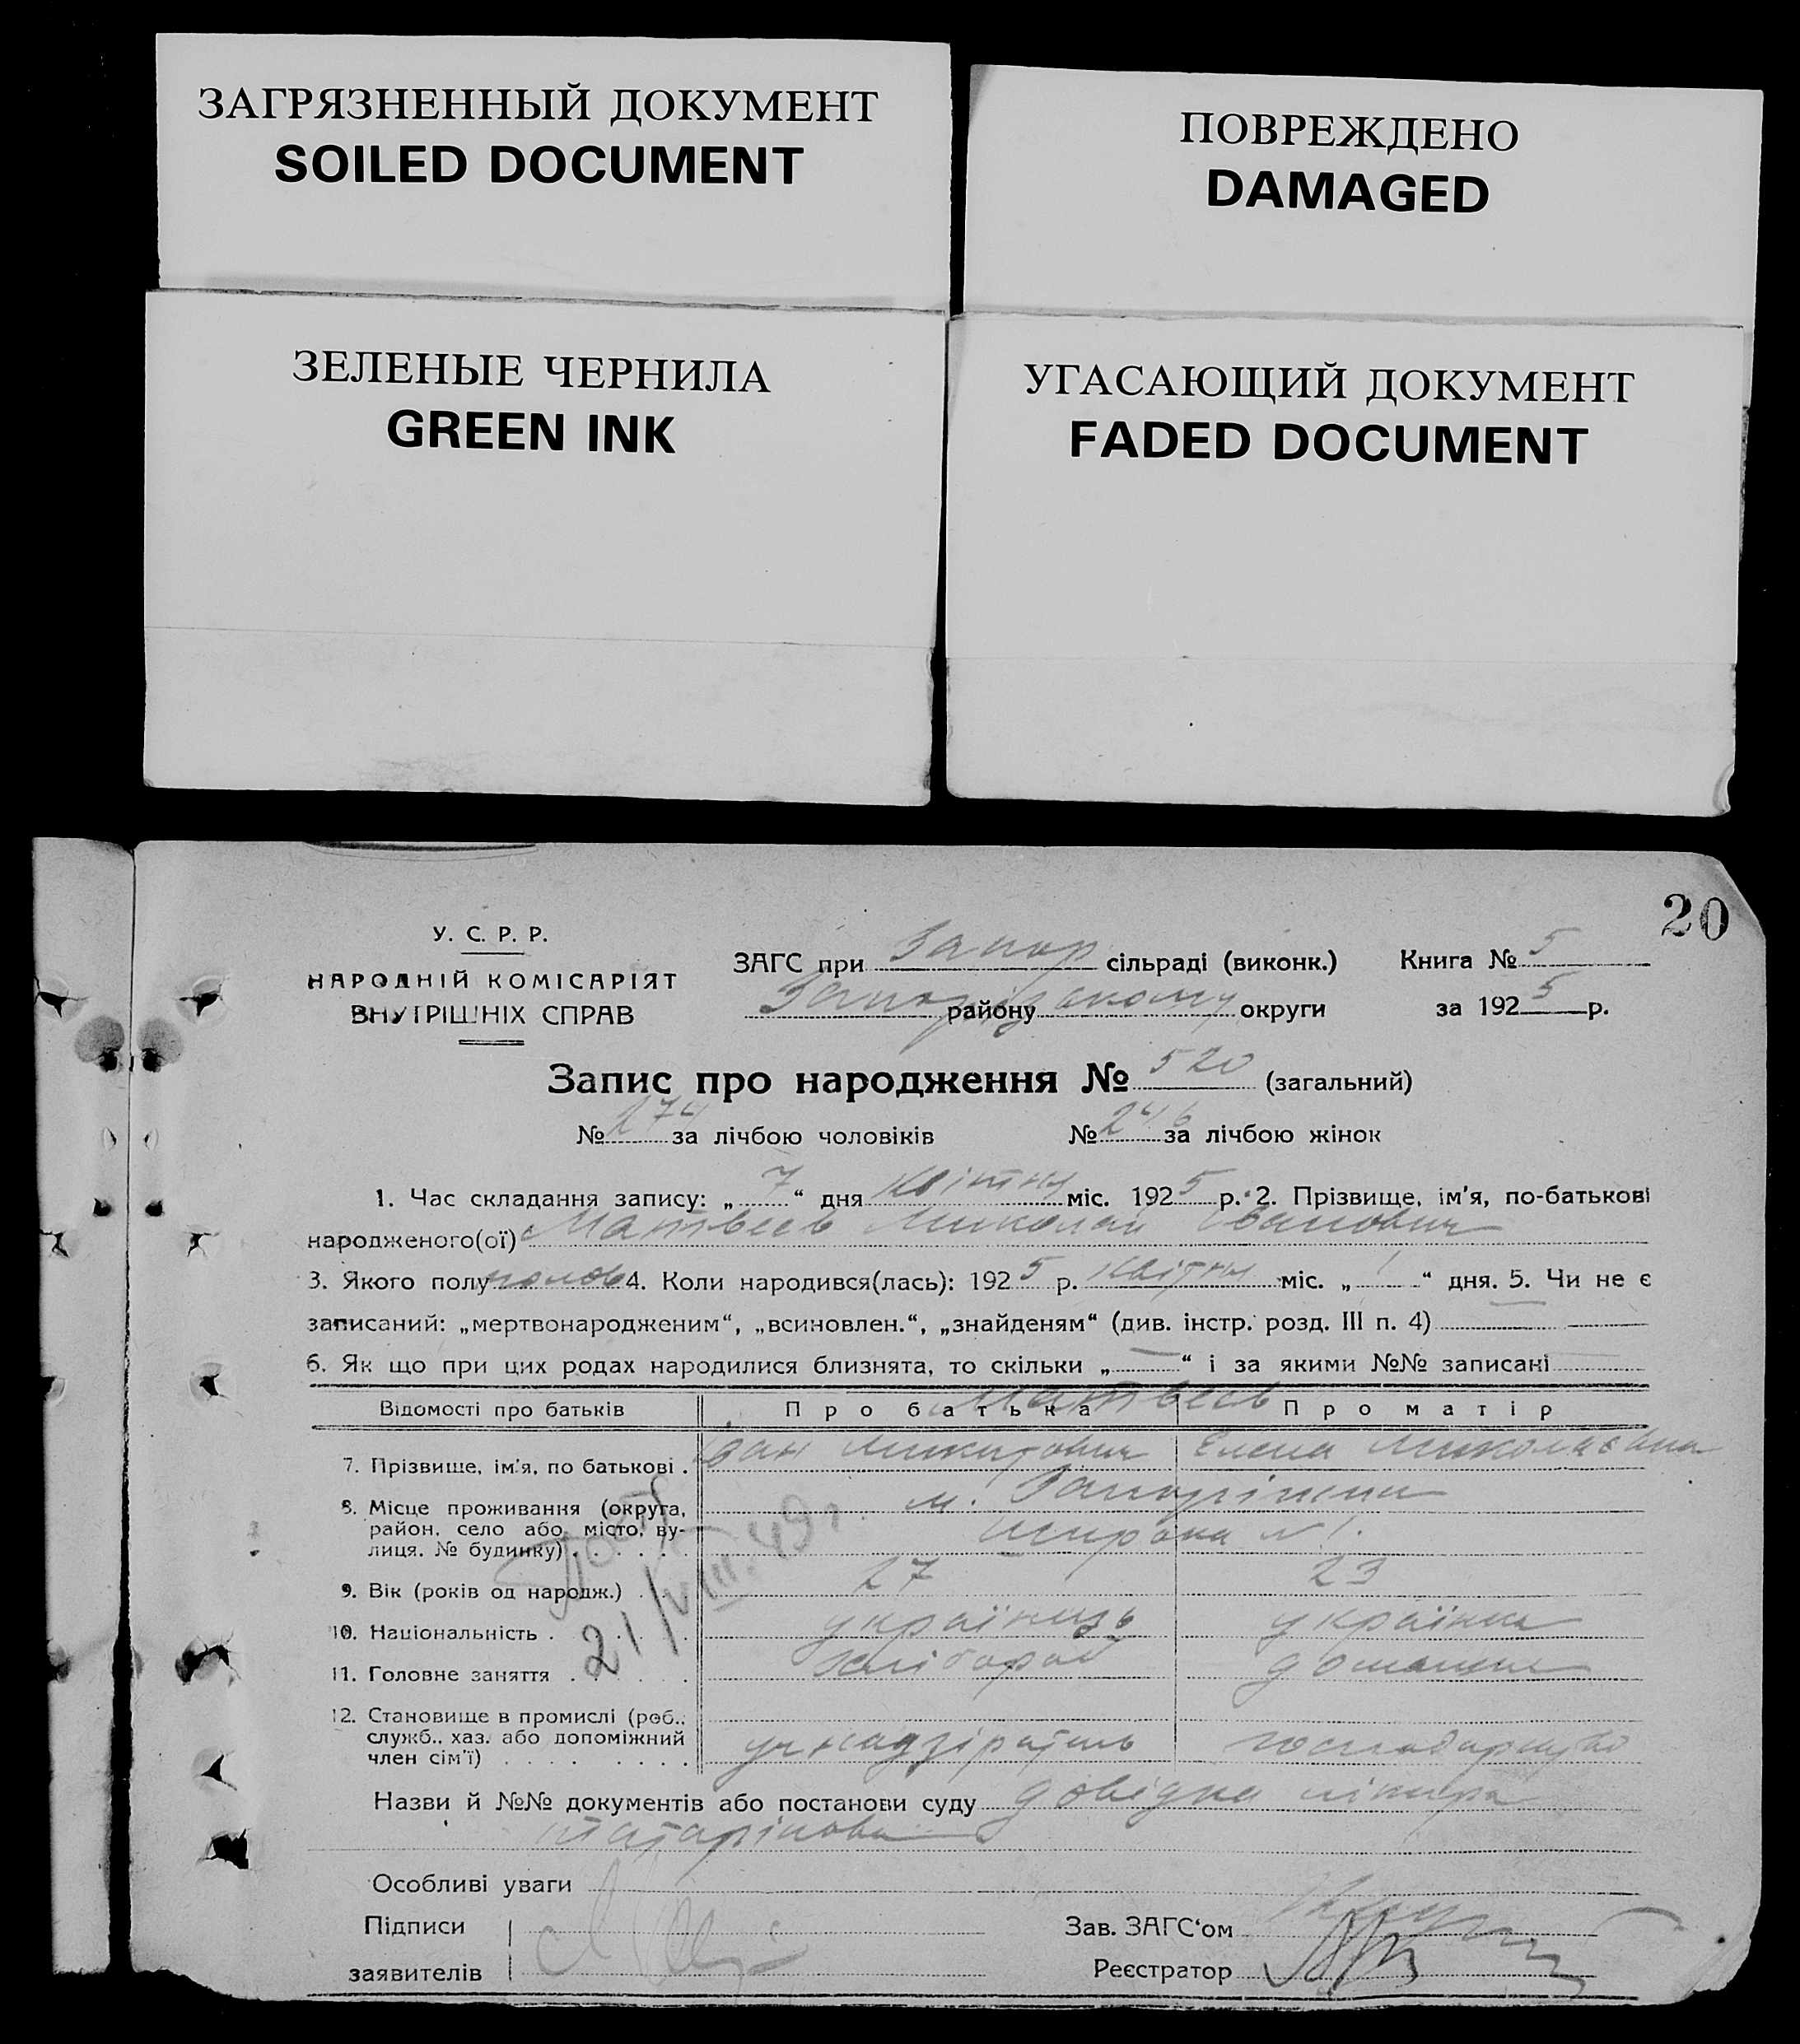 ЗАГРЯЗНЕННЫЙ ДОКУМЕНТ
SOILED DOCUMENT
ПОВРЕЖДЕНО
DAMAGED
ЗЕЛЕНЫЕ ЧЕРНИЛА
GREEN INK
УГАСАЮЩИЙ ДОКУМЕНТ
FADED DOCUMENT
20
У. С. Р. Р.
НАРОДНІЙ КОМІСАРІЯТ
ВНУТРІШНІХ СПРАВ
ЗАГС при Запор сільраді (виконк.) Книга № 5
району округи за 1925 р.
Запис про народження № 520 (загальний)
№ 274 за лічбою чоловіків № 246 за лічбою жінок
1. Час складання запису: „7“ дня квітня міс. 1925 р. 2. Прізвище, ім'я, по-батькові
народженого(ої) Матвеев Миколай Іванович
3. Якого полу 4. Коли народився(лась): 1925 р. квітня міс. „1“ дня. 5. Чи не є
записаний: „мертвонародженим“, „всиновлен.“, „знайденям“ (див. інстр. розд. III п. 4) —
6. Як що при цих родах народилися близнята, то скільки „—“ і за якими №№ записані
Відомості про батьків Про батька Про матір
Матвеев
7. Прізвище, ім'я, по батькові . Іван Микитович Елена Миколаевна
8. Місце проживання (округа, район, село або місто, ву-лиця, № будинку) . . . . . . м. Запоріжжя
Широка № 1.
21/VIII.49 г.
9. Вік (років од народж.) . . 27 23
10. Національність . . . українець українка
11. Головне заняття . . . . хлібороб домашне
12. Становище в промислі (роб., служб., хаз. або допоміжний член сім'ї) . . . . . . господарство
Назви й №№ документів або постанови суду довідка лікаря
Татарінова
Особливі уваги
Підписи
заявителів
Зав. ЗАГС'ом
Реєстратор